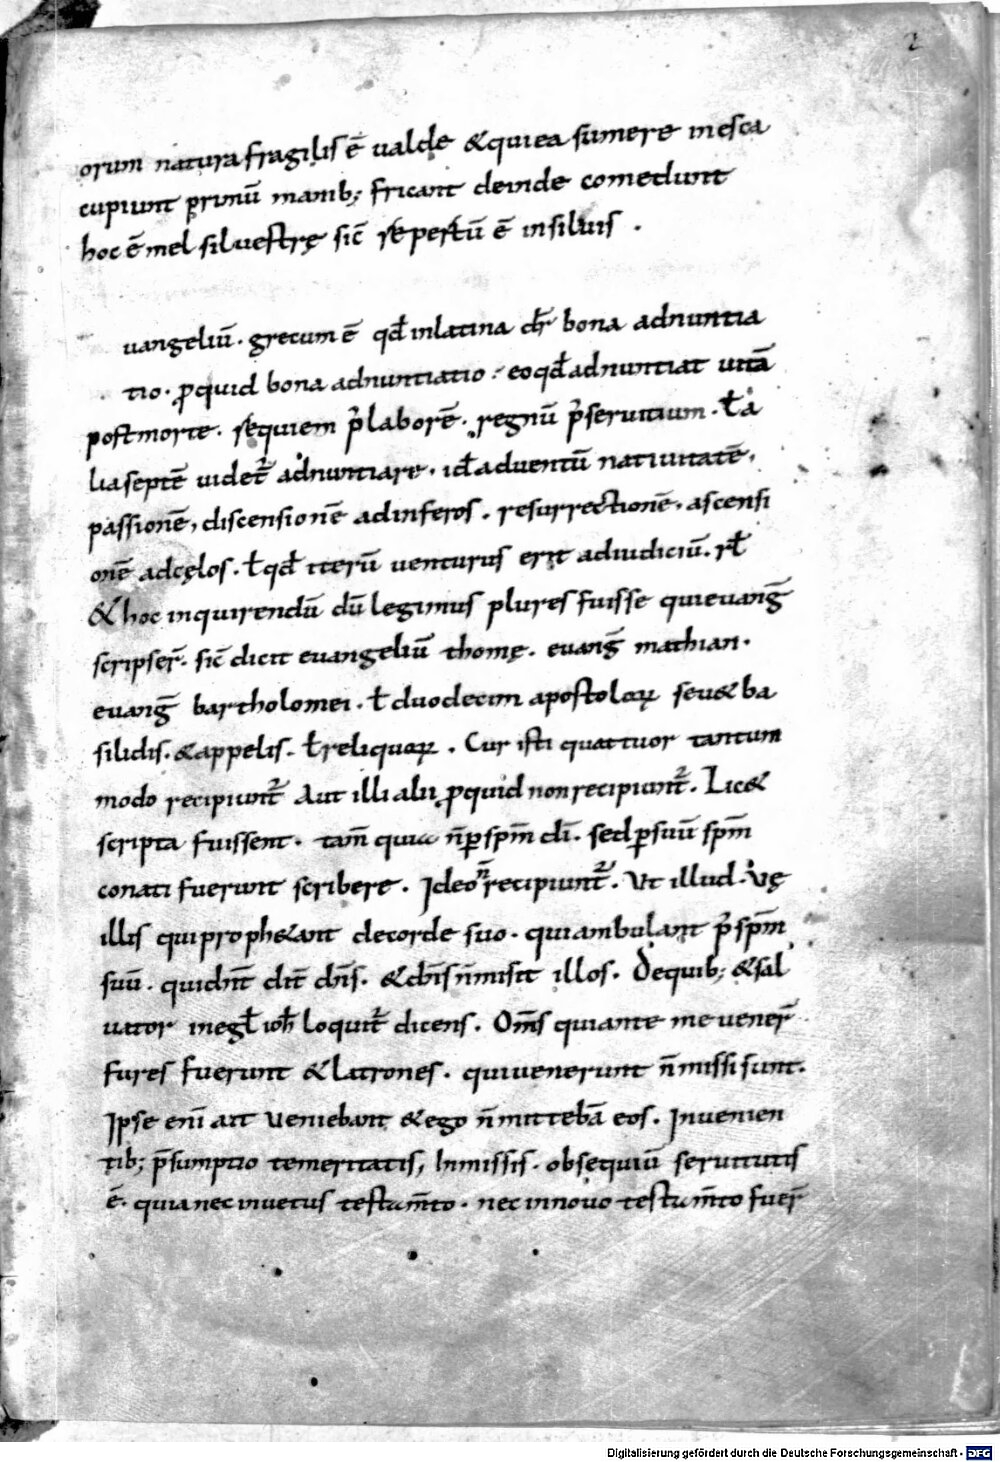 2
orum natura fragilis ē ualde & qui ea sumere inesca
cupiunt primū manib; fricant deinde comedunt
hoc ē mel siluestrę sic̄ repertū ē in siluis .
uangeliū · grecum ē qđ in latina dr̄ bona adnuntia
tio · ꝓquid bona adnuntiatio · eo qđ adnuntiat uitā
post morte · requiem p̄ laborē · regnū p̄ seruitium · ł a
lia septē uidet̄ adnuntiare · iđ aduentū natiuitatē,
passionē, discensionē ad inferos . resurrectionē, ascensi
onē ad cęlos · ł qđ iterū uenturus erit ad iudiciū · rł
& hoc inquirendū dū legimus plures fuisse qui euanḡ
scripser̄ · sic̄ dicit euangeliū thomę . euanḡ mathian ·
euanḡ bartholomei · ł duodecim apostoloꝝ seu & ba
silidis · & appelis · ł reliquoꝝ . Cur isti quattuor tantum
modo recipiunt̄ Aut illi alii ꝓquid non recipiunt̄ . Lic&
scripta fuissent · tam̄ quia n̄ ꝑ spm̄ dī · sed ꝑ suū spm̄
conati fuerunt scribere . Ideo n̄ recipiunt̄ . Ut illud · Vę
illis qui proph&ant de corde suo · qui ambulant p̄ spm̄
suū . quidn̄t dīc dn̄s . & dn̄s n̄ misit illos · De quib; & sal
uator in egł ioh̄ loquit̄ dicens . Om̄s qui ante me uener̄
fures fuerunt & latrones . qui uenerunt n̄ missi sunt .
Ipse enī ait Veniebant & ego n̄ mittebā eos . In uenien
tib; p̄sumptio temeritatis, In missis . obsequiū seruitutis
ē · quia nec in uetus testam̄to · nec in nouo testam̄to fuer̄
Digitalisierung gefördert durch die Deutsche Forschungsgemeinschaft - DFG